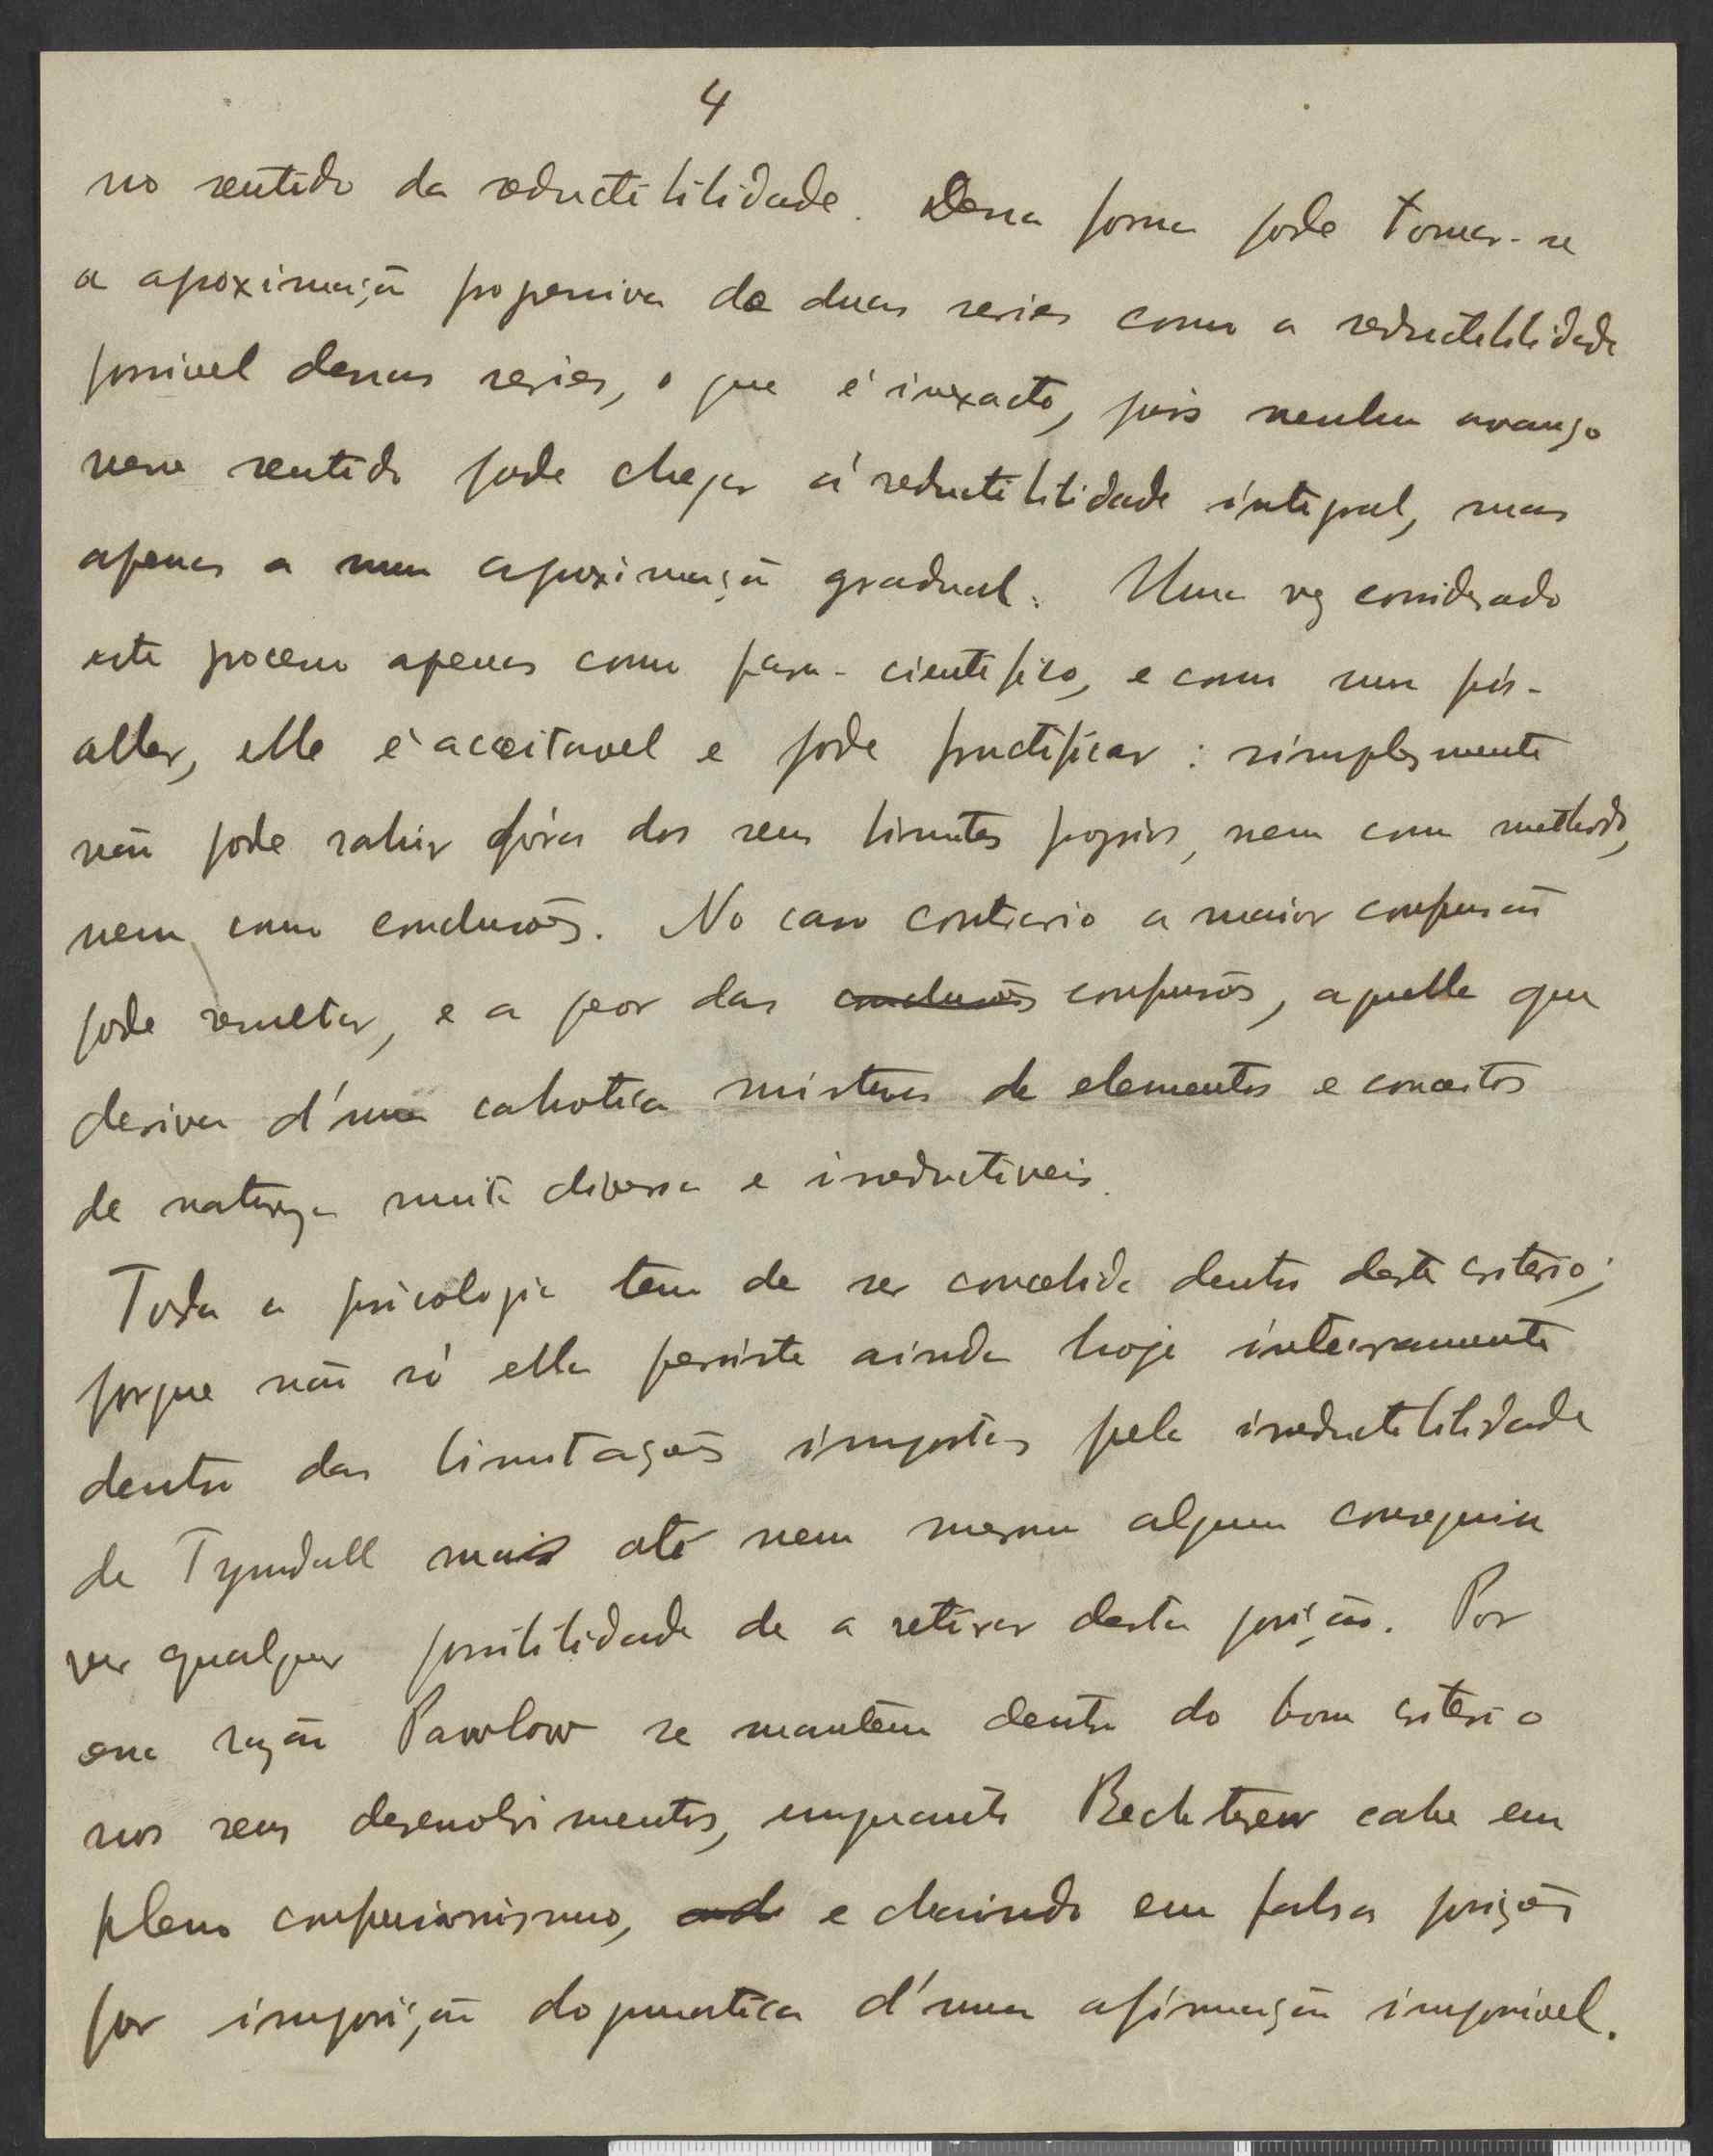 4
no sentido da reductibilidade. Dessa forma pode tomar-se
a aproximação progressiva de duas series como a reductibilidade
possivel dessas series, o que é inexacto, pois nenhum avanço
nesse sentido pode chegar á reductibilidade integral, mas
apenas a uma aproximação gradual. Uma vez considerado
este processo apenas como para-cientifico, e como um pis-
aller, elle é acceitavel e pode fructificar: simplesmente
não pode sahir fóra dos seus limites proprios, nem como methodo,
nem como conclusões. No caso contrario a maior confusão
pode resultar, e a peor das conclusões confusões, aquella que
deriva d'uma cahotica mistura de elementos e conceitos
de natureza muito diversa e irreductiveis.
Toda a psicologia tem de ser concebida dentro deste criterio;
porque não só ella persiste ainda hoje inteiramente
dentro das limitações impostas pela irreductibilidade
de Tyndall mais até nem mesmo alguem conseguiu
ver qualquer possibilidade de a retirar desta posição. Por
essa razão Pawlow se mantem dentro do bom criterio
nos seus desenvolvimentos, emquanto Bechterew cahe em
pleno confusionismo, e chaindo em falsas posições
por imposição dogmatica d'uma afirmação impossivel.